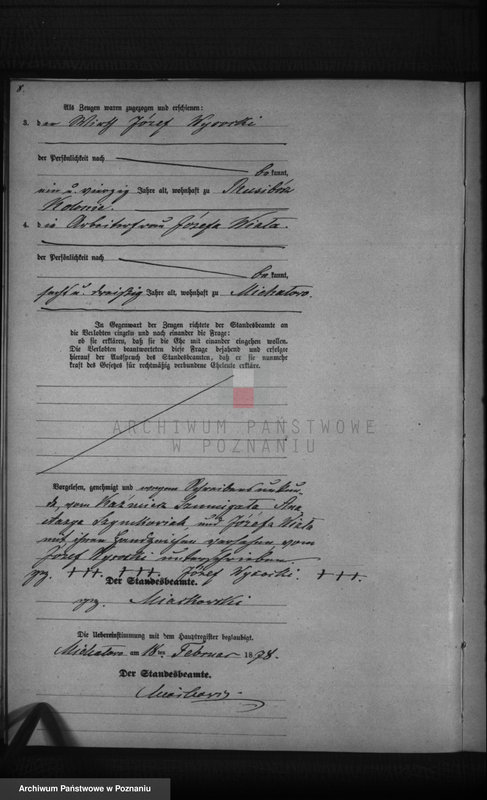 8.
Als Zeugen waren zugezogen und erschienen:
3. der Wirth Józef Wysocki
der Persönlichkeit nach
bekannt,
ein u. vierzig Jahre alt, wohnhaft zu
Kolonie.
4. die Arbeiterfrau Józefa Wiata.
der Persönlichkeit nach
bekannt,
sechs u. dreißig Jahre alt, wohnhaft zu Michalowo.
In Gegenwart der Zeugen richtete der Standesbeamte an
die Verlobten einzeln und nach einander die Frage:
ob sie erklären, daß sie die Ehe mit einander eingehen wollen.
Die Verlobten beantworteten diese Frage bejahend und erfolgte
hierauf der Ausspruch des Standesbeamten, daß er sie nunmehr
kraft des Gesetzes für rechtmäßig verbundene Eheleute erkläre.
ARCHIWUM PAŃSTWOWE
W POZNANIU
Vorgelesen, genehmigt und wegen Schreibensunkun-
de, vom Kaźmierz
und Józefa Wiata
mit ihren Handzeichen versehen vom
Józef Wysocki unterschrieben.
gez. +++. +++. Józef Wysocki. +++.
Der Standesbeamte.
gez. Miaskowski
Die Uebereinstimmung mit dem Hauptregister beglaubigt.
Michalowo am 18ten Februar 1898.
Der Standesbeamte.
Archiwum Państwowe w Poznaniu